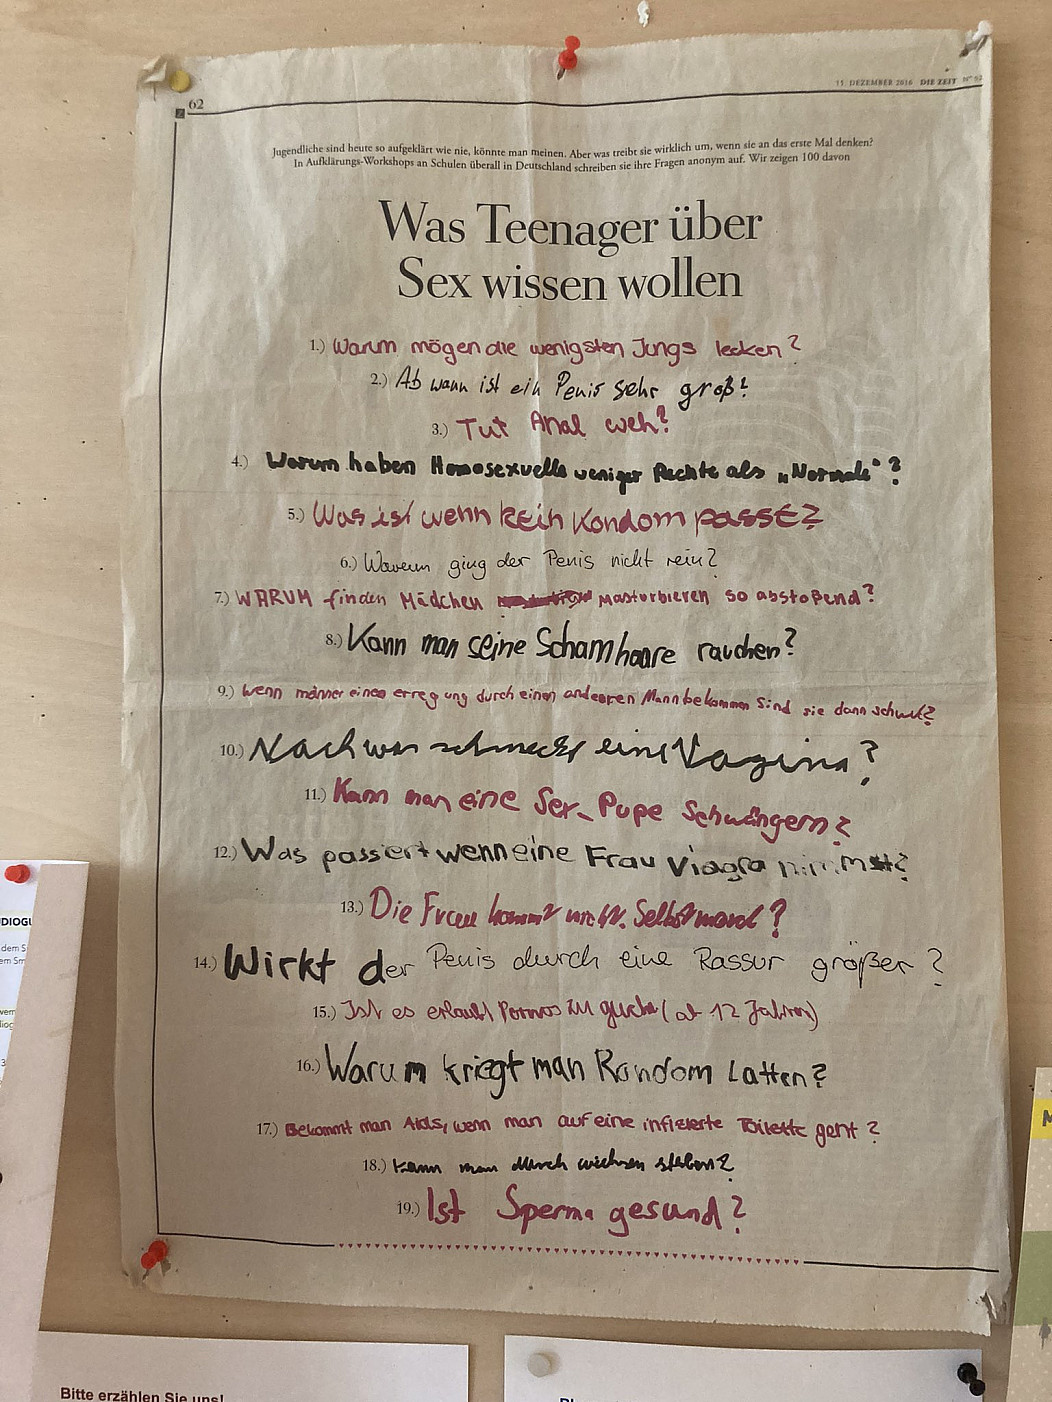 15. DEZEMBER 2016 DIE ZEIT N° 52
62
Jugendliche sind heute so aufgeklärt wie nie, könnte man meinen. Aber was treibt sie wirklich um, wenn sie an das erste Mal denken?
In Aufklärungs-Workshops an Schulen überall in Deutschland schreiben sie ihre Fragen anonym auf. Wir zeigen 100 davon
Was Teenager über
Sex wissen wollen
1.) Warum mögen die wenigsten Jungs lecken?
2.) Ab wann ist ein Penis sehr groß?
3.) Tut Anal weh?
4.) Warum haben Homosexuelle weniger Rechte als „Normale“?
5.) Was ist wenn kein Kondom passt?
6.) Warum ging der Penis nicht rein?
7.) WARUM finden Mädchen Masturbieren so abstoßend?
8.) Kann man seine Schamhaare rauchen?
9.) Wenn männer eine erregung durch einen anderen Mann bekommen sind sie dann schwul?
10.) Nach was schmeckt eine Vagina?
11.) Kann man eine Sex-Pupe Schwängern?
12.) Was passiert wenn eine Frau Viagra nimmt?
13.) Die Frau kommt nicht. Selbstmord?
14.) Wirkt der Penis durch eine Rassur größer?
15.) Ist es erlaubt Pornos zu gucken (ab 12 Jahren)
16.) Warum kriegt man Random Latten?
17.) Bekommt man Aids, wenn man auf eine infizierte Toilette geht?
18.) Kann man durch wichsen sterben?
19.) Ist Sperma gesund?
DIOGU
dem S
em Sm
Bitte erzählen Sie uns!